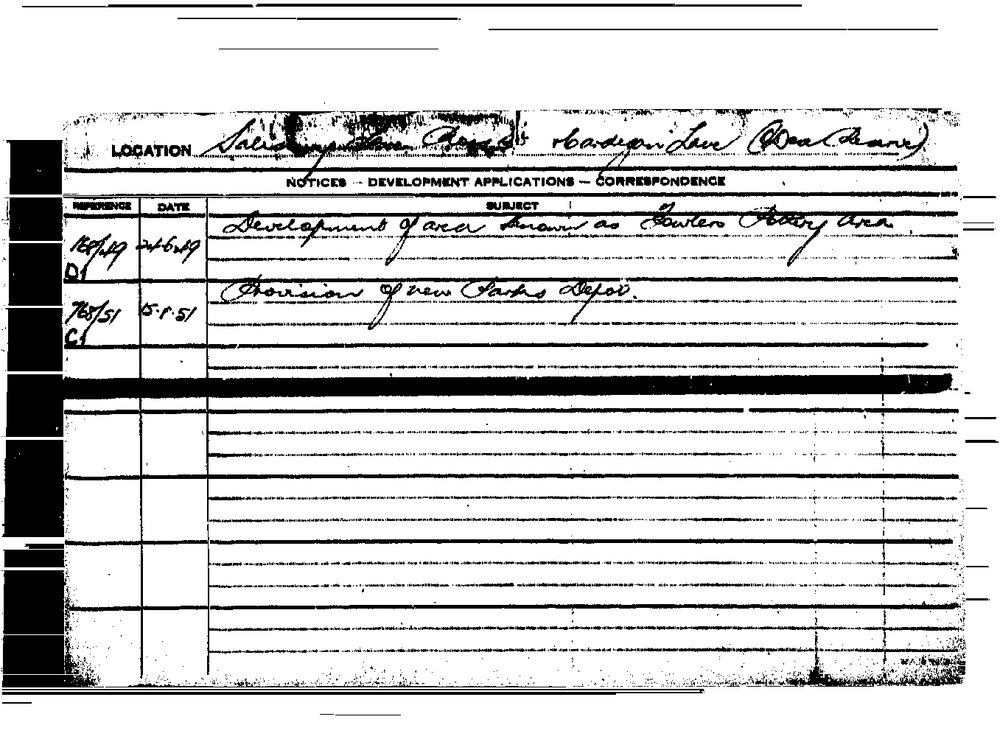 LOCATION Salisbury Lane Cardigan Lane
NOTICES - DEVELOPMENT APPLICATIONS - CORRESPONDENCE
REFERENCE DATE SUBJECT
Development of area known as Fowlers Pottery area.
168/49 24.6.49
D1
Provision of new Parks Depot.
768/51 15.1.51
C1